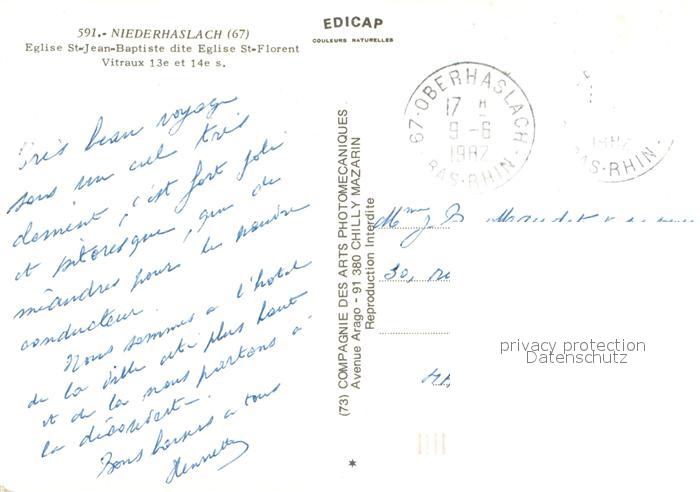 591.- NIEDERHASLACH (67)
Eglise St-Jean-Baptiste dite Eglise St-Florent
Vitraux 13e et 14e s.
EDICAP
COULEURS NATURELLES
Très beau voyage
sous un ciel très
clément, c'est fort joli
et pitoresque, que de
méandres pour le pauvre
conducteur.
Nous sommes à l'hotel
de la ville cité plus haut
et de la nous partons à
la découverte.
Bons baisers à tous
Henriette
(73) COMPAGNIE DES ARTS PHOTOMECANIQUES
Avenue Arago - 91 380 CHILLY MAZARIN
Reproduction Interdite
67-OBERHASLACH
17 H
9-6
1982
BAS-RHIN
1982
BAS-RHIN
Mme J
30, ru
privacy protection
Datenschutz